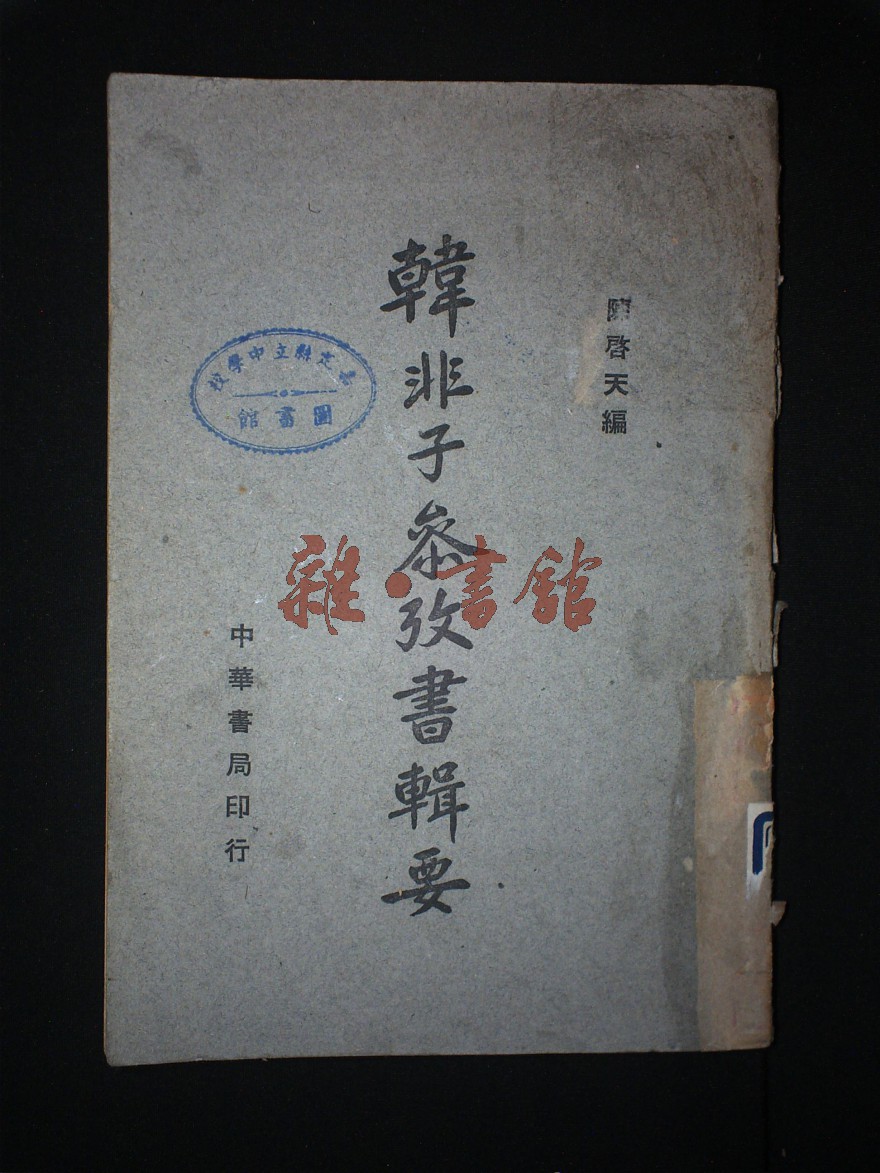 陳啓天編
韓非子叅攷書輯要
中華書局印行
定縣立中學校
圖書館
雜·書館